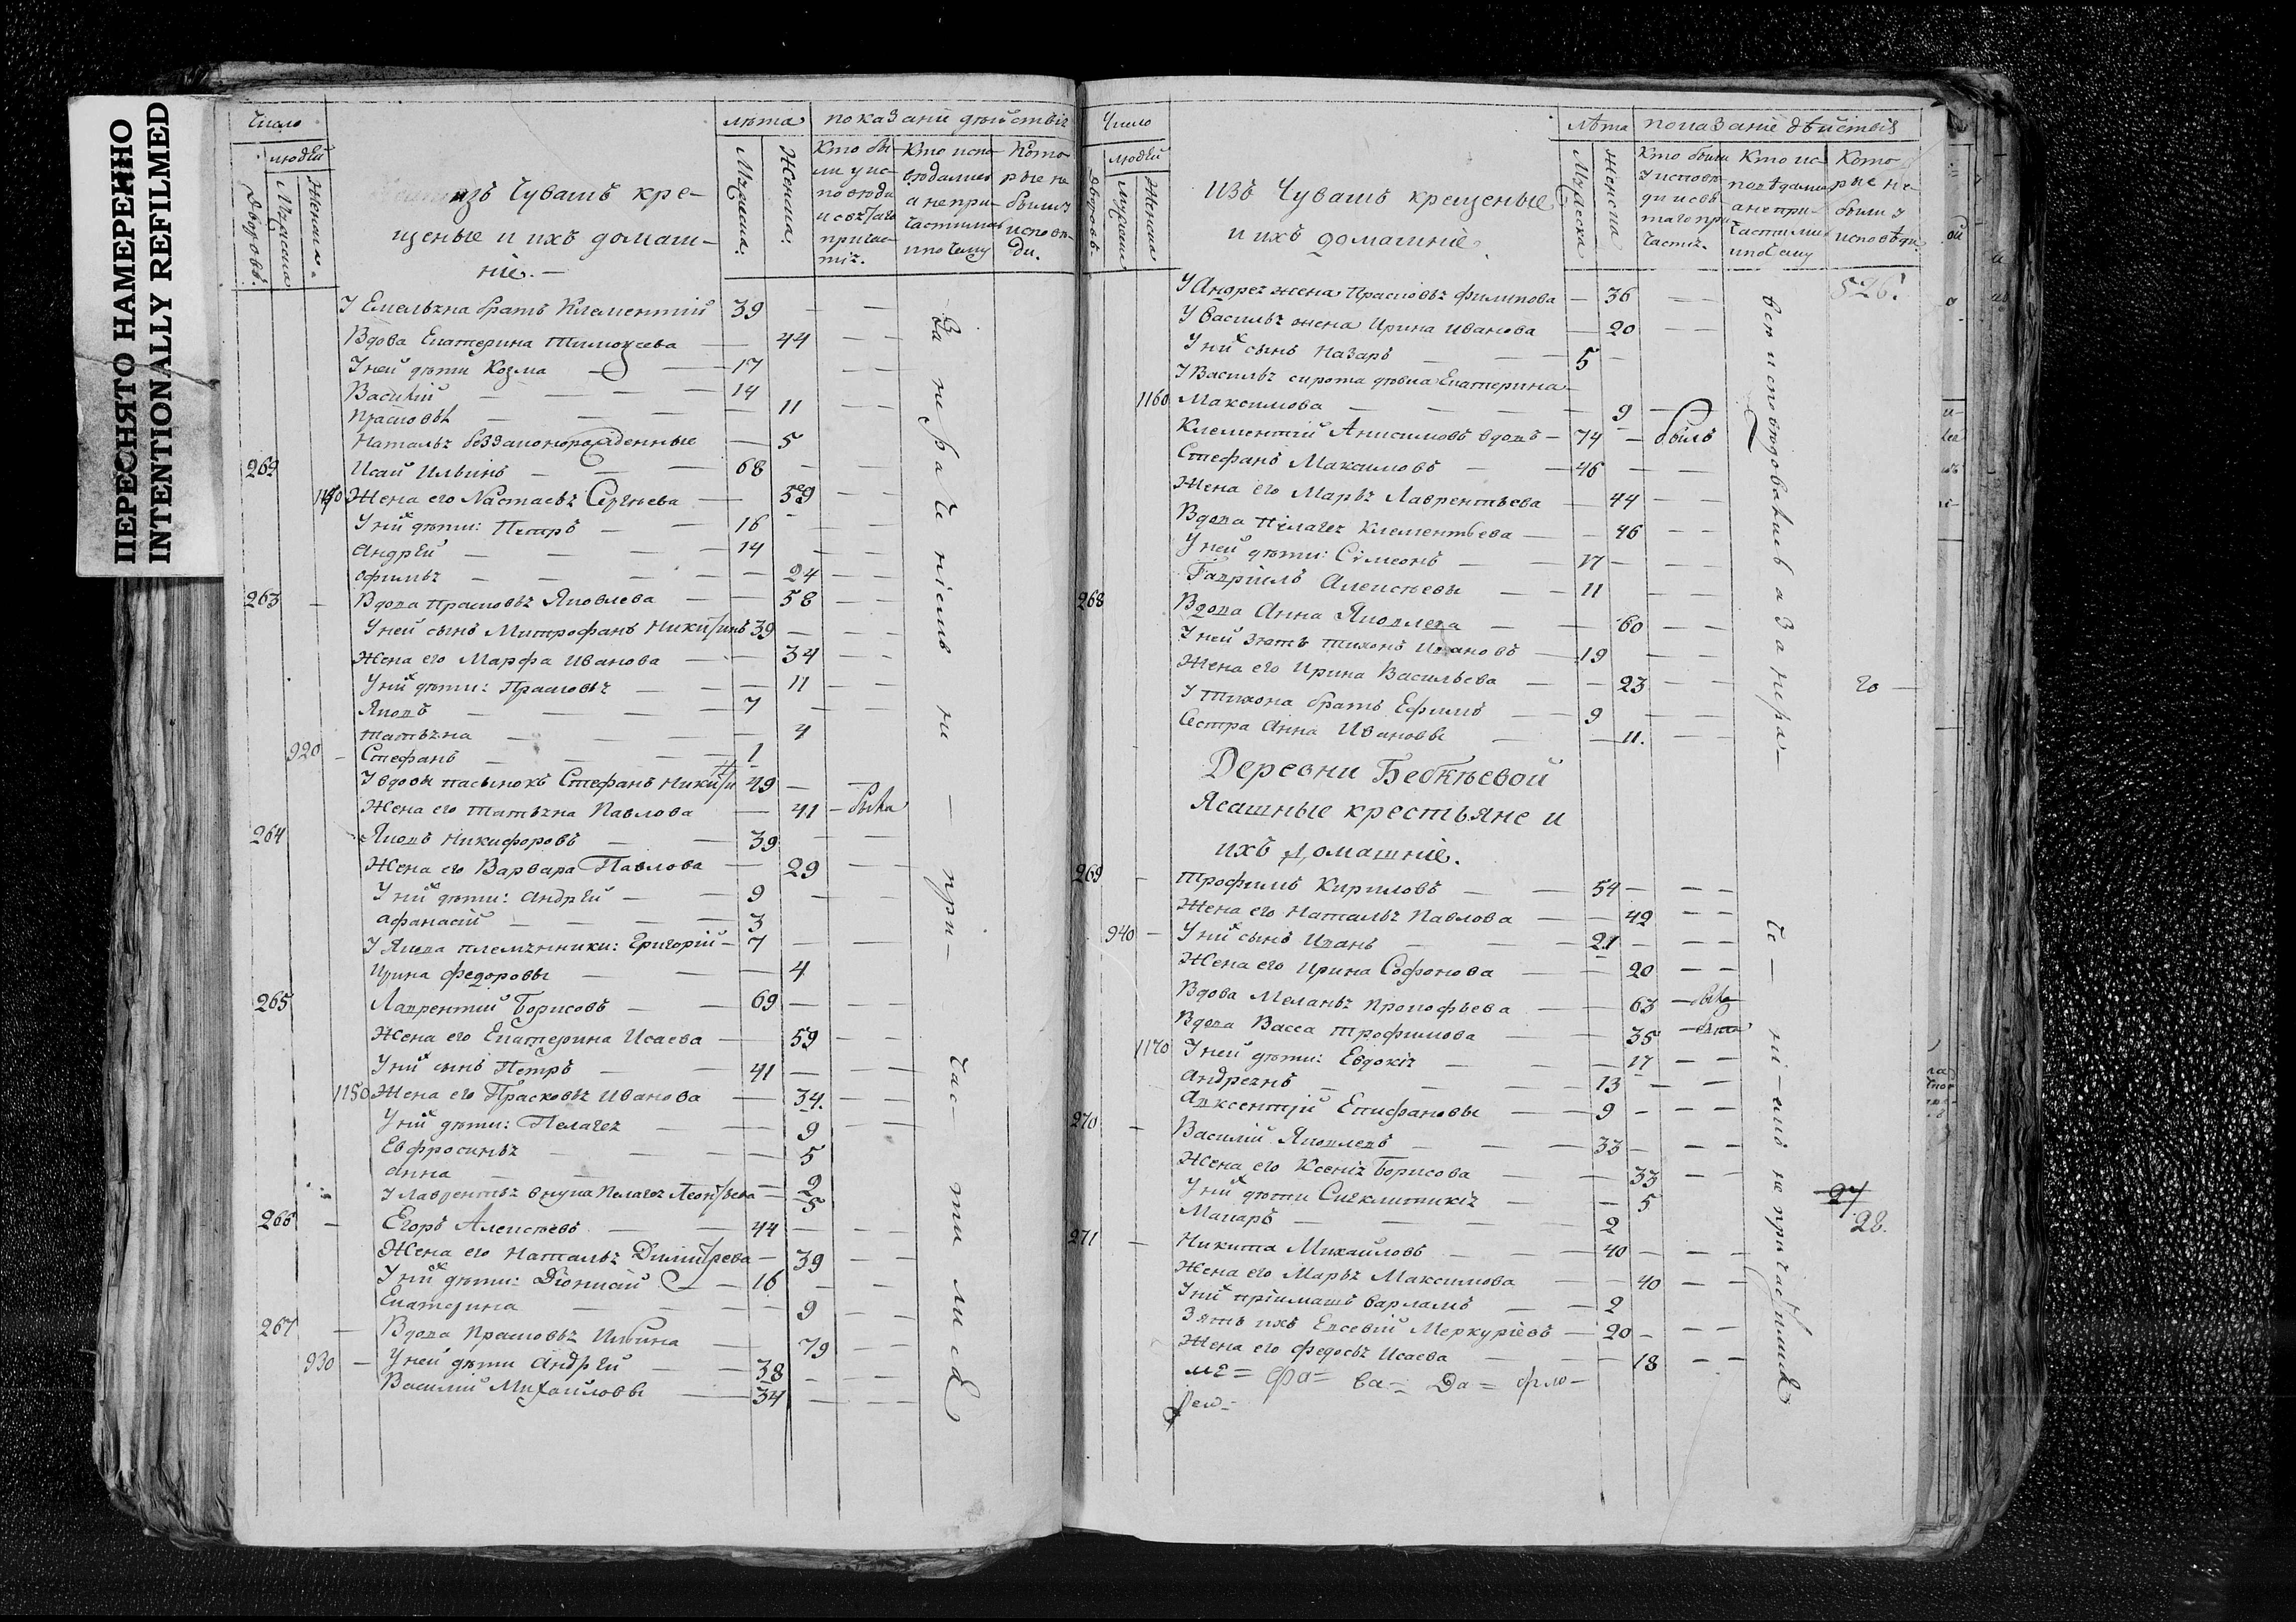 ПЕРЕСНЯТО НАМЕРЕННО
INTENTIONALLY REFILMED
Число
людей
Дворовъ.
Мужеска
Женска.
изъ Чувашъ кре-
щеные и ихъ домаш-
ніе.-
лѣта
Мужеска.
Женска.
показаніе дѣйствія
Кто бы-
ли у ис-
повѣди
и свят/аго
причас-
тія.
Кто испо-
вѣдались
а не при-
частились
и по чему
Кото-
рые не
были у
исповѣ-
ди.
У Емельяна братъ Климентий 39
Вдова Екатерина Тимоѳеева 44
У ней дѣти Козма 17
Василій 14
Прасковья 11
Наталья беззаконорожденные 5
262 Исай Ильинъ 68
1140 Жена его Настасья Сергѣева 59
У нихъ дѣти: Петръ 16
Андрей 14
Офимья 24
263 Вдова Прасковья Яковлева 58
У ней сынъ Митрофанъ Никитинъ 39
Жена его Марфа Иванова 34
У нихъ дѣти: Прасковья 11
Яковъ 7
Татьяна 4
920 Стефанъ 1
У вдовы пасынокъ Стефанъ Никити 49
Жена его Татьяна Павлова 41 - была
264 Яковъ Никифоровъ 39
Жена его Варвара Павлова 29
У нихъ дѣти: Андрей 9
Афанасій 3
У Якова племянники: Григорій 7
Ирина Федоровы 4
265 Лаврентий Борисовъ 69
Жена его Екатерина Исаева 59
У нихъ сынъ Петръ 41
1150 Жена его Прасковья Иванова 34.
У нихъ дѣти: Пелагея 9
Евфросинья 5
Анна 2
У Лаврентья внука Пелагея Леонтьева 5
266 Егоръ Алексѣевъ 44
Жена его Наталья Димитрева 39
У нихъ дѣти: Діонисій 16
Екатерина 9
267 Вдова Прасковья Ильина 79
930 У ней дѣти Андрей 38
Василій Михайловы 34
За нераченіемъ ни - при - час- тились
Число
людей
дворовъ.
Мужеска
Женска
изъ Чувашъ крещеные
и ихъ домашніе.
Лѣта
Мужеска
Женска
показаніе дѣйствія
Кто были
у исповѣ-
ди и свя-
таго при-
частія.
Кто ис-
повѣдались
а не при-
частились
и по чему
Кото-
рые не
были у
исповѣди.
526.
У Андрея жена Прасковья Филипова 36
У Василья жена Ирина Иванова 20
У нихъ сынъ Назаръ 5
У Василья сирота дѣвка Екатерина
1160 Максимова 9
Клементий Анисимовъ вдовъ 74 - былъ
Стефанъ Максимовъ 46
Жена его Марья Лаврентьева 44
Вдова Пелагея Клементьева 46
У ней дѣти: Сімеонъ 17
Гавріилъ Алексѣевы 11
268 Вдова Анна Яковлева 60
У ней зять Тихонъ Ивановъ 19
Жена его Ирина Васильева 23
20
У Тихона братъ Ефимъ 9
Сестра Анна Ивановы 11.
Деревни
Ясашные крестьяне и
ихъ домашніе.
269 Трофимъ Кириловъ 54
Жена его Наталья Павлова 49
940 У нихъ сынъ Иванъ 21
Жена его Ирина Софонова 20
Вдова Меланья Прокофьева 63 - была
Вдова Васса Трофимова 35 - была
1170 У ней дѣти: Евдокія 17
Андреянъ 13
Авксентій Епифановы 9
270 Василій Яковлевъ 33
Жена его Ксенія Борисова 33
У нихъ дѣти Сигклитикія 5
27
28.
Макаръ 2
271 Никита Михайловъ 40
Жена его Марья Максимова 40
У нихъ пріимашъ Варламъ 2
Зять ихъ Евсевій Меркурієвъ 20
Жена его Федосья Исаева 18
Ва= Да= фло-
всѣ исповѣдовались а за нера- че- ні-емъ не причастились